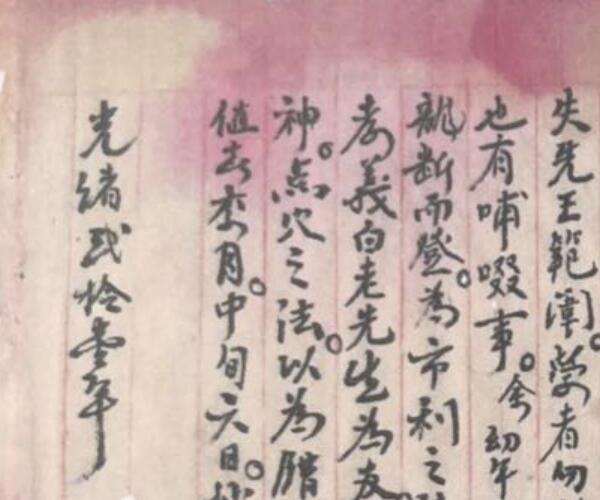 失先王範圍。學者切
也有哺啜事。余幼年
龍斷而登。為市利之
孝義白老先生為友
神。点穴之法。以為腊
值去冬月。中旬六日。
光緒弍拾壹年